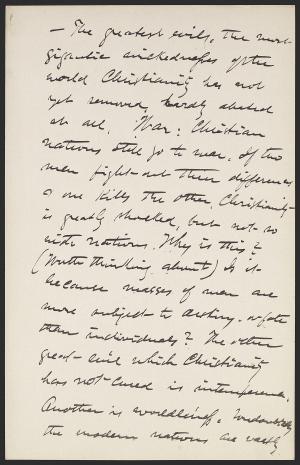 — The greatest evils, the most
gigantic wickednesses of the
world Christianity has not
yet removed, hardly abated
at all. War: Christian
nations still go to war. If two
men fight out their differences
& one kills the other, Christianity
is greatly shocked, but not so
with nations. Why is this?
(Worth thinking about) Is it
because masses of men are
more subject to destiny or fate
than individuals? The other
great evil which Christianity
has not cured is intemperance.
Another is worldliness. Undoubtedly
the modern nations are vastly